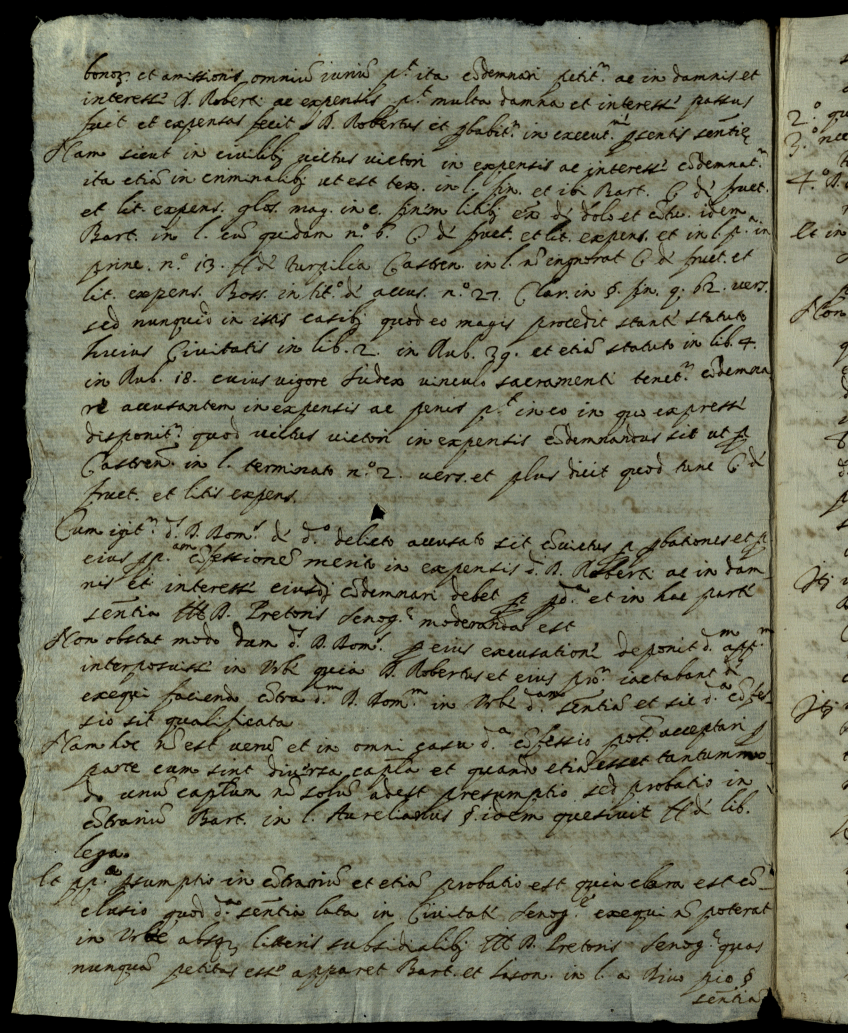 bonoꝝ. et amissionis omniũ iuriũ p.ᵗ ita cõdemnari petit.ʳ ac in damnis et
interesse D. Roberti ac expensis p.ᵗ multa damna et interesse passus
fuit et expensas fecit D. Robertus et ꝓbabit.ʳ in execut.ⁿᵉ pñtis sentẽtię
Nam sicut in civilibȝ victus victori in expensis ac interesse cõdemnat.ʳ
ita etiã in criminalibȝ ut est tex. in l. fin. et ibi Bart. C. de fruct.
et lit. expens. glos. mag. in c. finem litibȝ ex.ᵃ de dolo et cõtu. idem
Bart. in l. eũ quidam n.º 6. C. de fruct. et lit. expens. et in l. p.ᵃ in
princ. n.º 13. ff. de Turpilia Castren. in l. nõ ignorat C. de fruct. et
lit. expens. Boss. in tit.º de accus. n.º 27. Clar. in §. fin. q. 62. vers.
sed nunquid in istis casibȝ quod eo magis procedit stante statuto
huius Civitatis in lib. 2. in Rub. 39. et etiã statuto in lib. 4.
in Rub. 18. cuius vigore Iudex vinculo sacramenti tenet.ʳ cõdemna
re accusantem in expensis ac penis p.ᵗ in eo in quo expresse
disponit.ʳ quod victus victori in expensis cõdemnandus sit ut p.
Castren. in l. terminato n.º 2. vers. et plus dicit quod tunc C. de
fruct. et litis expens.
Cum igit.ʳ d.ˢ D. Rom.ˢ de d.º delicto accusato sit cõvictus p. ꝓbationes et p.
eius pp.ᵃᵐ cõfessionẽ merito in expensis d. D. Roberti ac in dam
nis et interesse eiusdȝ cõdemnari debet et in hac parte
sentẽtia Ill. D. Pretoris Senog.ᵉ moderanda est
Non obstat modo dum d.ˢ D. Rom.ˢ p. eius excusatione deponit d.ᵐ app.ᵐ
interposuisse in Urbe quia D. Robertus et eius pro.ʳ iactabant se
exequi faciend. cõtra d.ᵐ D. Rom.ᵐ in Urbe d.ᵃᵐ sentẽtiã et sic d.ᵃ cõfes
sio sit qualificata
Nam hoc nõ est verũ et in omni casu d.ᵃ cõfessio pot. acceptari p.
parte cum sint diversa cap.la et quando etiã esset tantummo
do unũ cap.lum nõ solũ adest presumptio sed probatio in
cõtrariũ Bart. in l. Aurelianus §. idem quesivit ff. de lib.
lega.
Et pp.ᵃ psumptio in cõtrariũ et etiã probatio est quia clara est cõ
clusio quod d.ᵃ sentẽtia lata in Civitate Senog.ᵉ exequi nõ poterat
in Urbe absqȝ litteris subsidialibȝ Ill. D. Pretoris Senog.ᵉ quas
nunquã petitas esse apparet Bart. et Iason. in l. a Divo pio §.
sentẽtiã